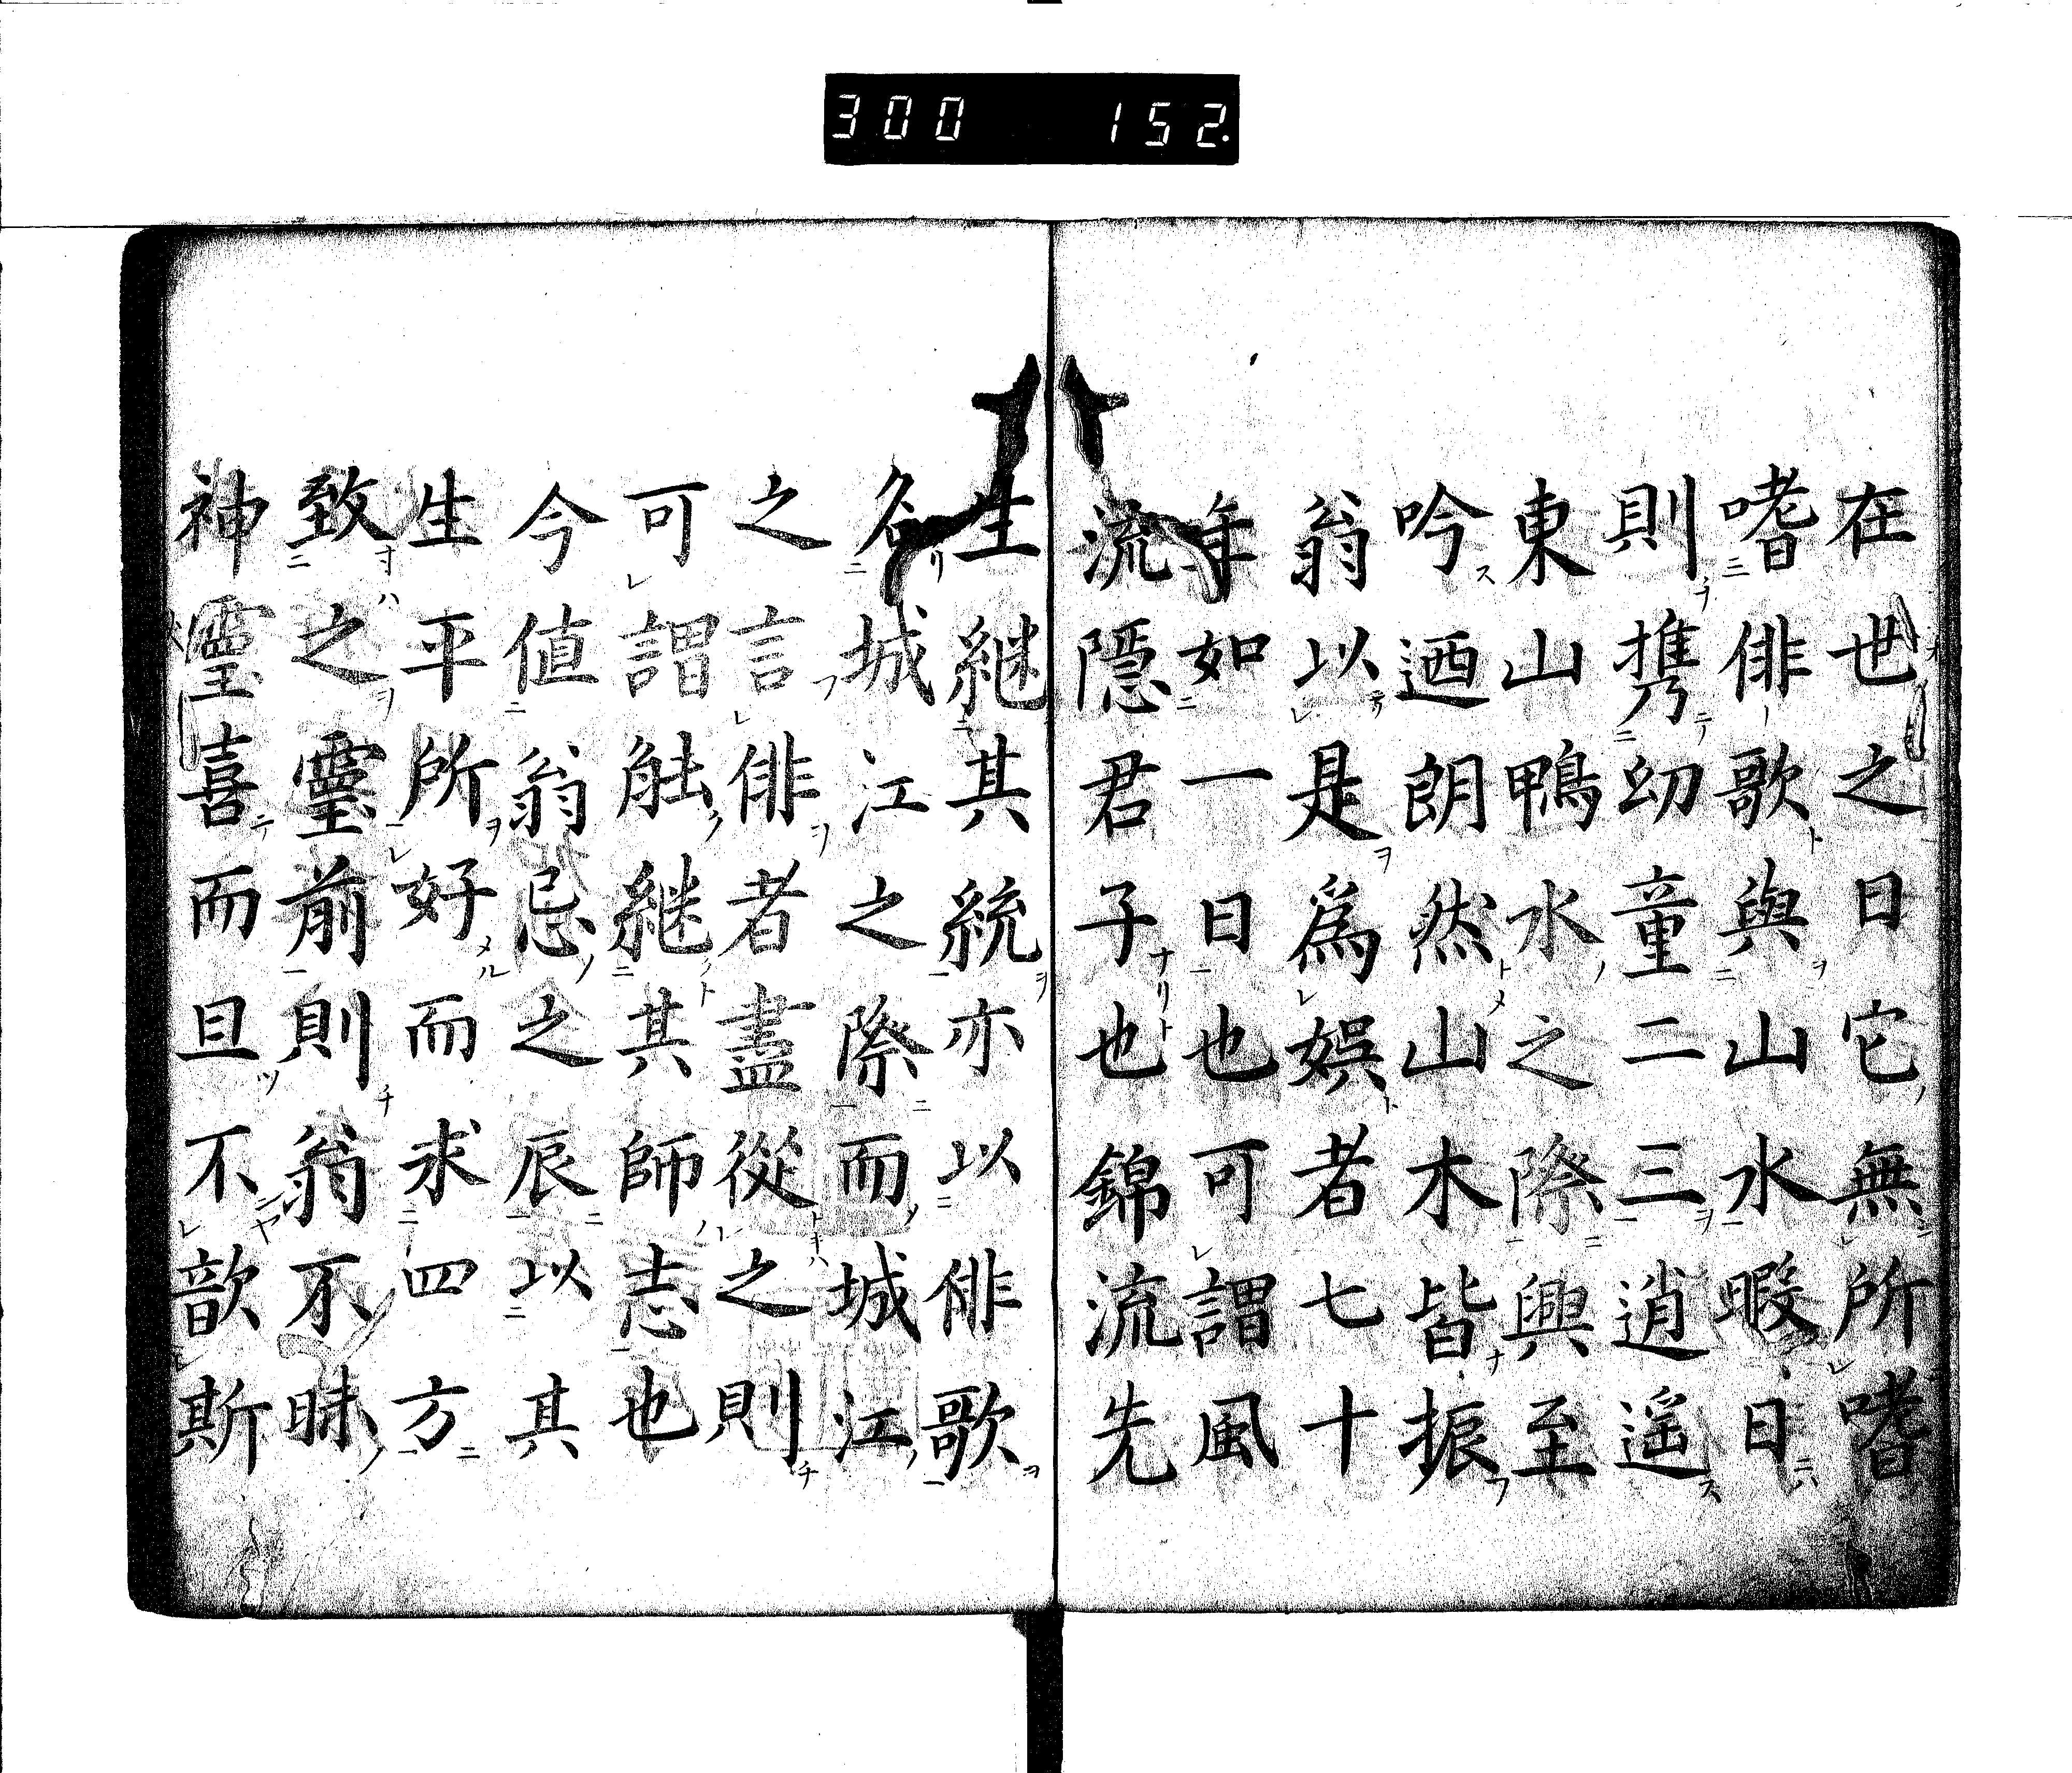 300 152.
在世之日它無所嗜
嗜俳歌與山水暇日
則携幼童二三逍遥
東山鴨水之際興至
吟迺朗然山木皆振
翁以是為娯者七十
年如一日也可謂風
流隠君子也錦流先
生継其統亦以俳歌
名城江之際而城江
之言俳者盡從之則
可謂能継其師志也
今値翁忌之辰以其
生平所好而求四方
致之靈前則翁不昧
神靈喜而且不歆斯